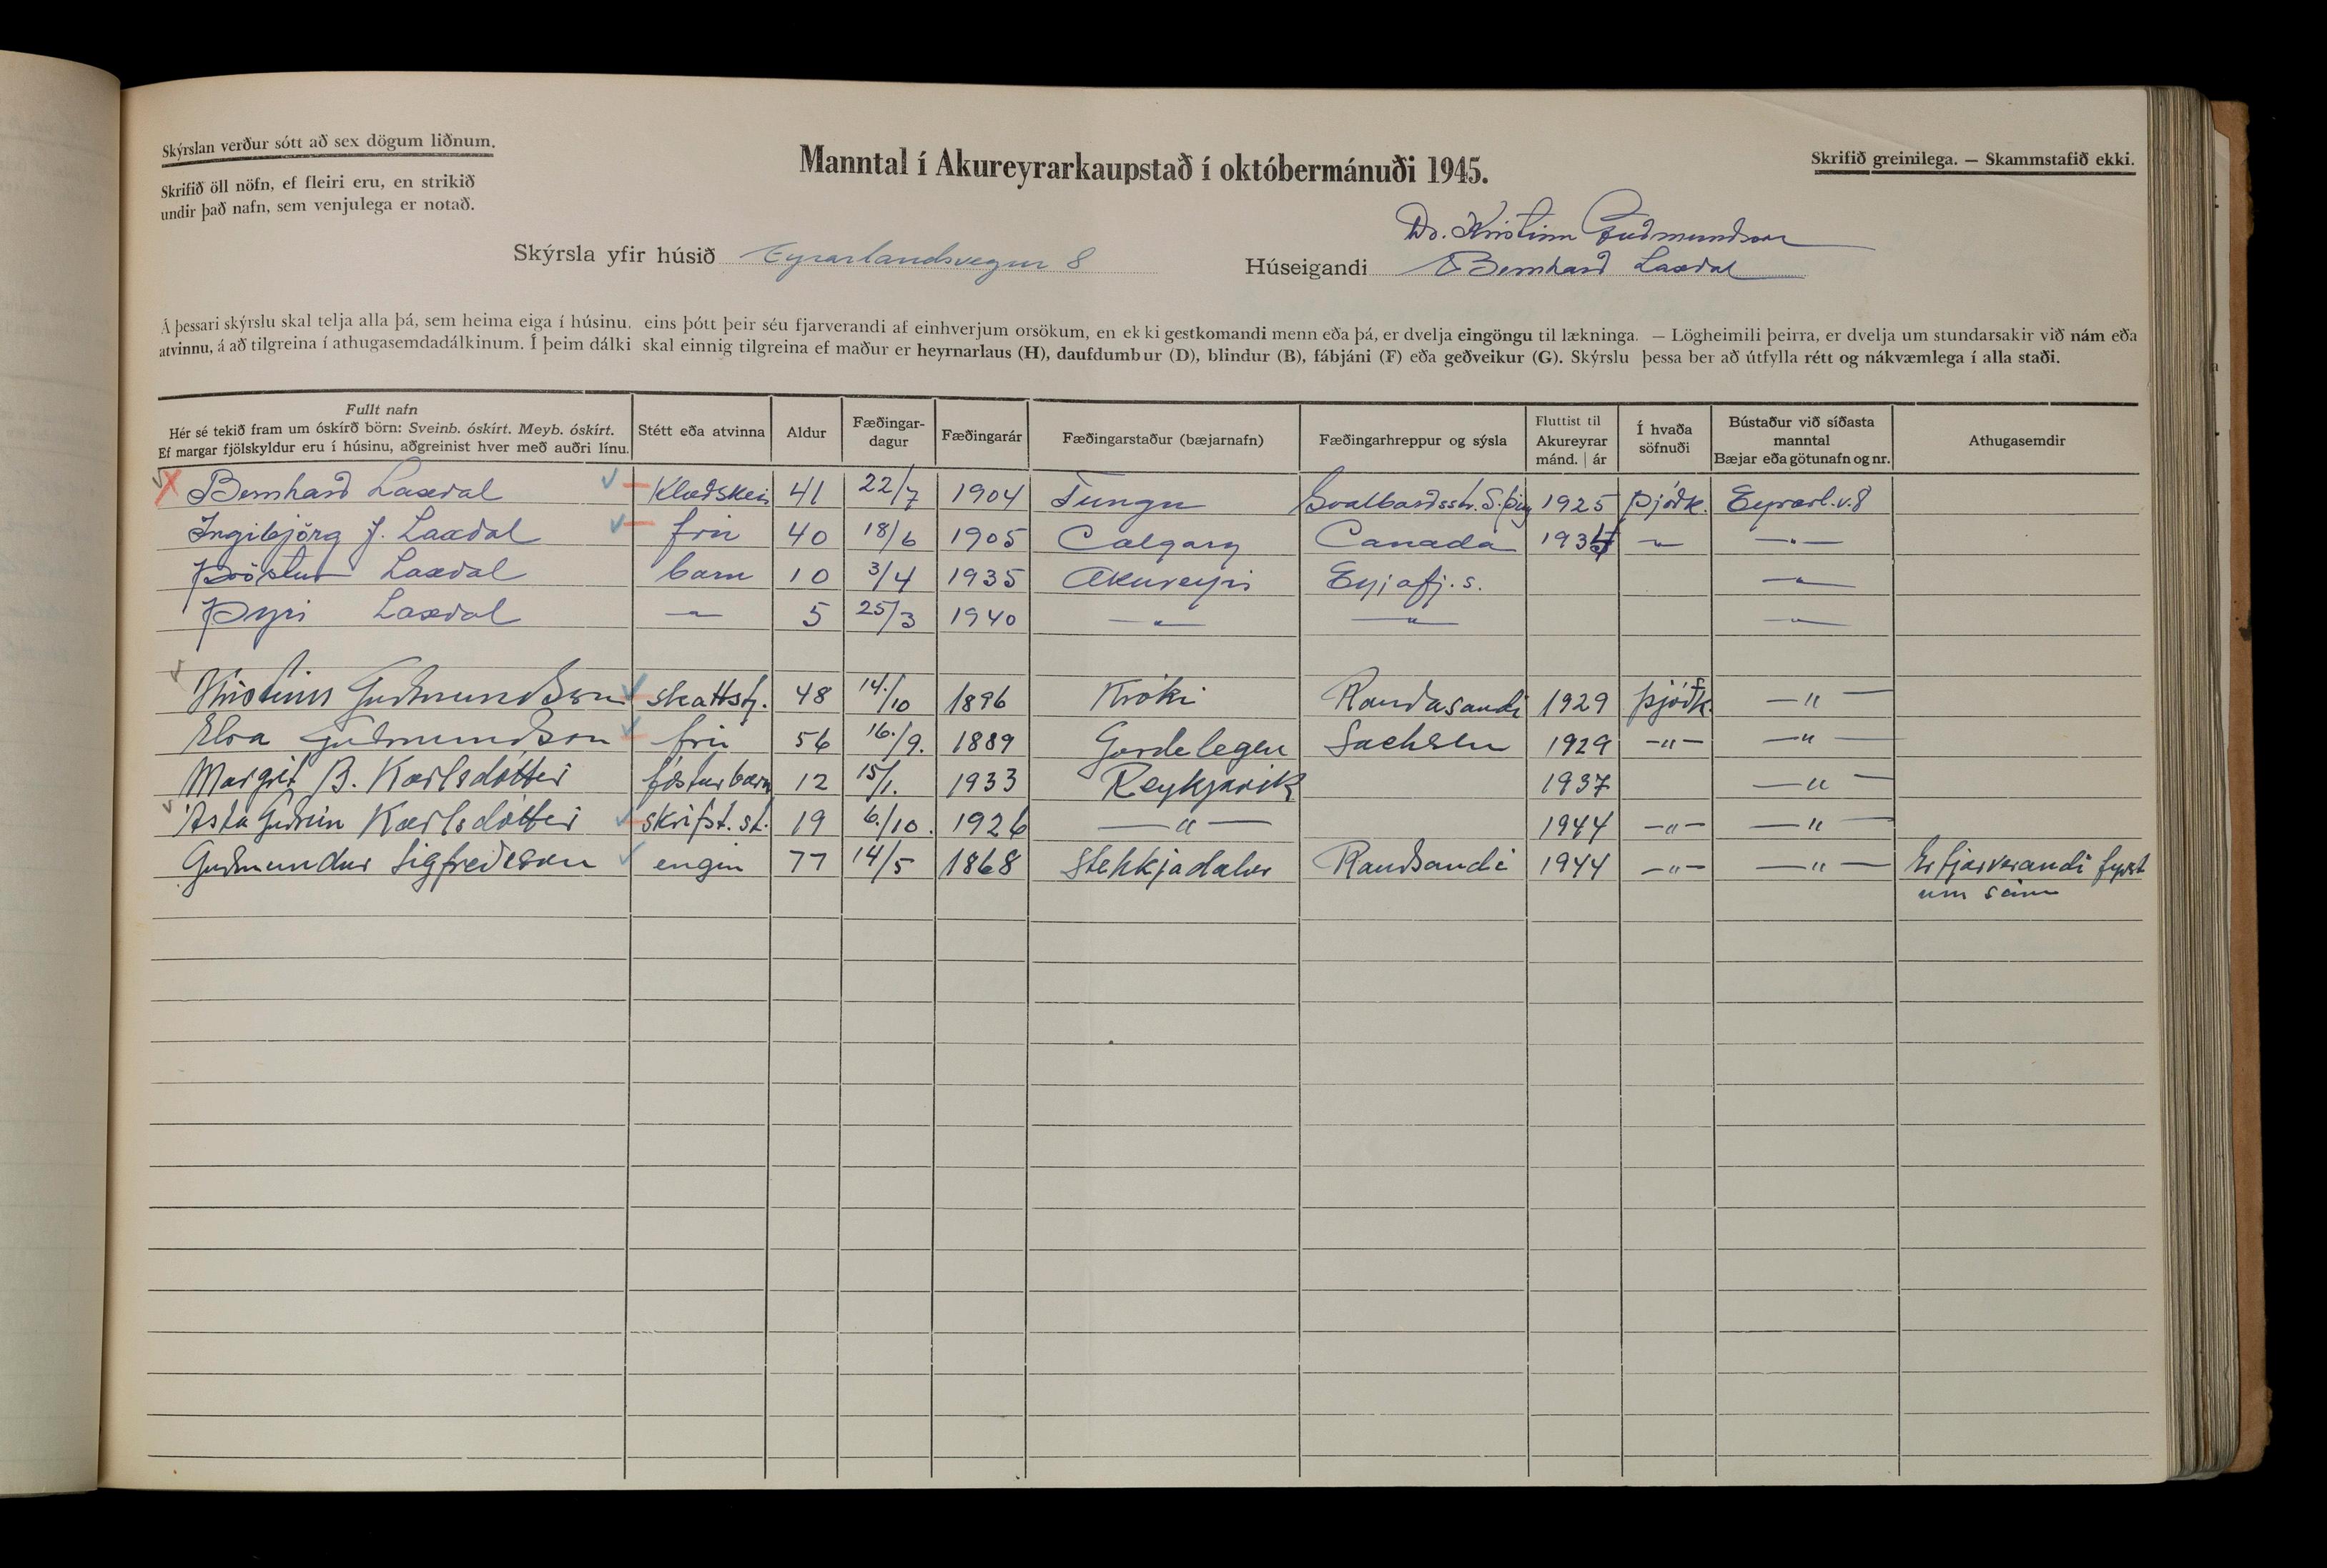 Skýrslan verður sótt að sex dögum liðnum.
Skrifið öll nöfn, ef fleiri eru, en strikið
undir það nafn, sem venjulega er notað.
Manntal í Akureyrarkaupstað í októbermánuði 1945.
Skrifið greinilega. — Skammstafið ekki.
Dr. Kristinn Guðmundsson
Skýrsla yfir húsið Eyrarlandsvegur 8 Húseigandi Bernhard Laxdal
Á þessari skýrslu skal telja alla þá, sem heima eiga í húsinu, eins þótt þeir séu fjarverandi af einhverjum orsökum, en ekki gestkomandi menn eða þá, er dvelja eingöngu til lækninga. — Lögheimili þeirra, er dvelja um stundarsakir við nám eða
atvinnu, á að tilgreina í athugasemdadálkinum. Í þeim dálki skal einnig tilgreina ef maður er heyrnarlaus (H), daufdumbur (D), blindur (B), fábjáni (F) eða geðveikur (G). Skýrslu þessa ber að útfylla rétt og nákvæmlega í alla staði.
Fullt nafn
Hér sé tekið fram um óskírð börn: Sveinb. óskírt. Meyb. óskírt.
Ef margar fjölskyldur eru í húsinu, aðgreinist hver með auðri línu.
Stétt eða atvinna
Aldur
Fæðingar-
dagur
Fæðingarár
Fæðingarstaður (bæjarnafn)
Fæðingarhreppur og sýsla
Fluttist til
Akureyrar
mánd. | ár
Í hvaða
söfnuði
Bústaður við síðasta
manntal
Bæjar eða götunafn og nr.
Athugasemdir
Bernhard Laxdal Klæðsker 41 22/7 1904 Tunga Svalbarðsstr. S. þing 1925 Þjóðk. Eyrarl.v. 8
Ingibjörg J. Laxdal frú 40 18/6 1905 Calgary Canada — " — — " —
Þröstur Laxdal barn 10 3/4 1935 Akureyri Eyjafj. s. — " —
Þyri Laxdal — " — 5 25/3 1940 — " — — " — — " —
Kristinn Guðmundsson skattstj. 48 14./10 1896 Króki Rauðasandi 1929 þjóðk. — " —
Elsa Guðmundsson frú 56 16./9. 1889 Gardelegen Sachsen 1929 — " — — " —
Margrét B. Karlsdóttir fósturbarn 12 15/1. 1933 Reykjavík 1937 — " —
Ásta Guðrún Karlsdóttir skrifst. st. 19 6./10. 1926 — " — 1944 — " — — " —
Guðmundur Sigfreðsson engin 77 14/5 1868 Stekkjadalur Rauðsandi 1944 — " — — " — Er fjarverandi fyrst
um sinn